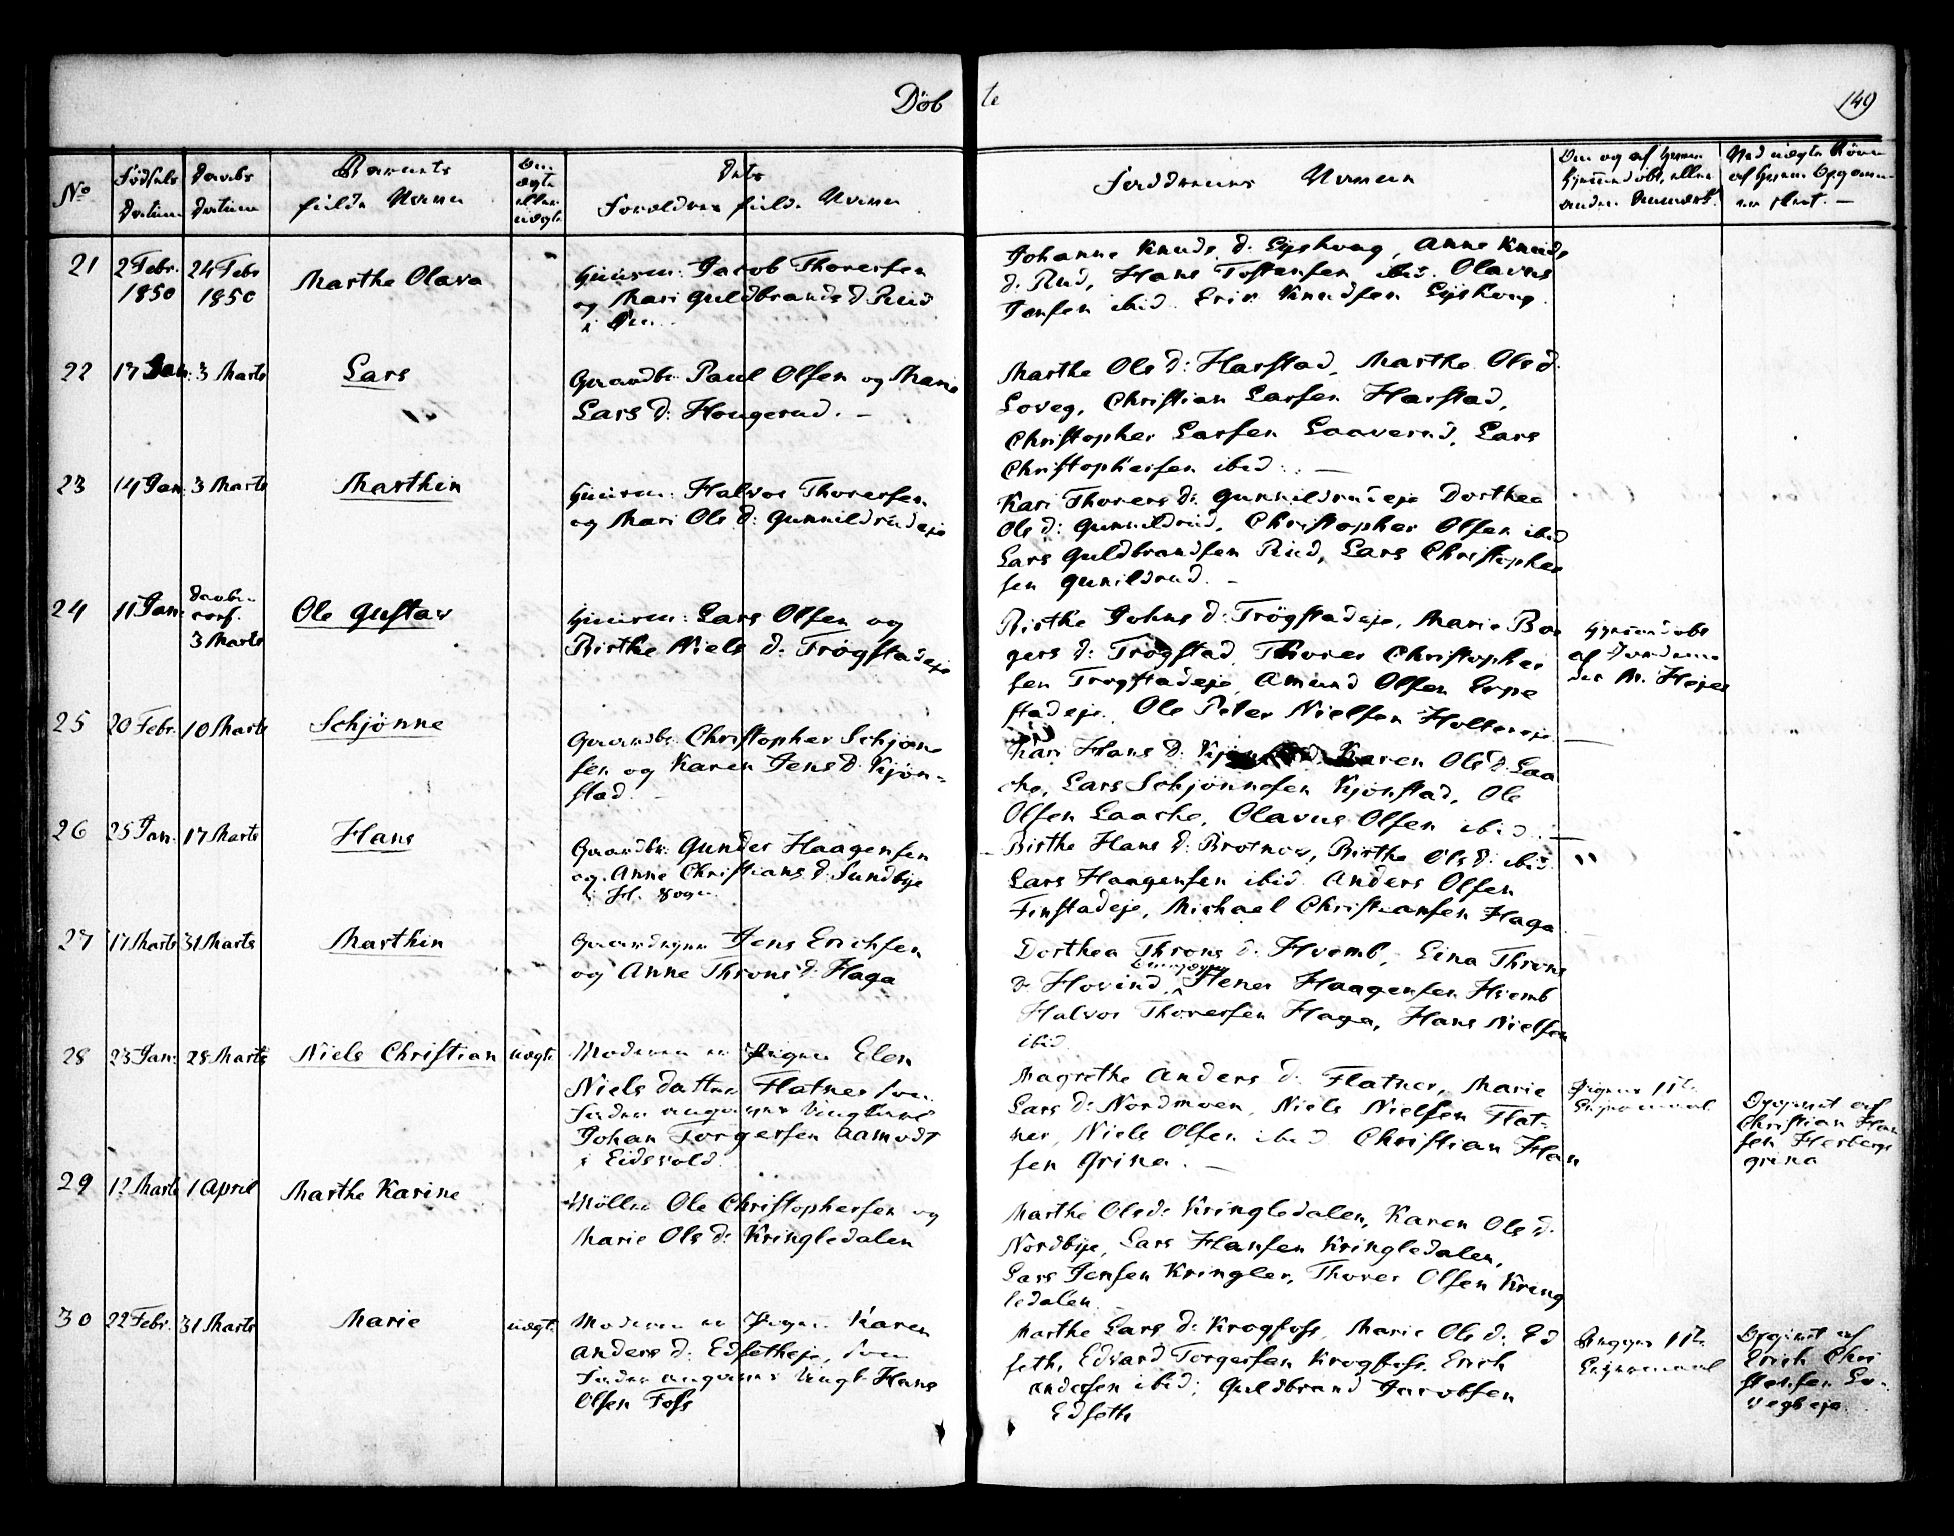 Döbte
149
No
Fødsels Datum
Daabs Datum
Barnets fulde Navn
Om ægte eller uægte
Dets Forældres fulde Navne
Faddernes Navne
21
2 Febr. 1850
24 Febr 1850
Marthe Olava
Huusm: Jacob Thoresen
og Mari Guldbrands D: Rud
Johanne Knuds D. Eyshoug, Anne Knuds
D: Rud, Hans Tostensen ibid. Olavus
Jensen ibid. Eric Knudsen Eyshoug.
22
17 Jan:
3 Marts
Lars
Gaardbr: Paul Olsen og Marie
Lars D: Hougerud. –
Marthe Ols D: Harstad, Marthe Ols D.
Loveg, Christian Larsen Harstad,
Christopher Larsen Laaverud, Lars
Christophersen ibid: –
23
14 Jan
3 Marts
Marthin
Huusm: Halvor Thoresen
og Mari Ols D: Gunnildrudeje
Kari Thores D: Gunnildrudeje Dorthea
Ols D: Gunnildrud, Christopher Olsen ibid
Lars Guldbrandsen Rud, Lars Christopher
sen Gunildrud. –
24
11 Jan:
3 Marts
Ole Gustav
Huusm: Lars Olsen og
Birthe Niels D: Trögstadeje
Birthe Johns D: Trögstadeje, Marie Bor
gers D: Trögstad, Thorer Christopher
sen Trögstadeje, Amund Olsen Erpe
stadeje. Ole Peter Nielsen Holtereje
Hjemmedøbt
25
20 Febr.
10 Marts
Schjønne
Gaardbr: Christopher Schjøn
sen og Karen Jens D: Kjøn=
stad. –
Kari Hans D. Karen Ols D: Laa
che, Lars Schjønnesen Kjønstad, Ole
Olsen Laache, Olavus Olsen ibid:
26
25 Jan:
17 Marts
Hans
Gaardbr: Gunder Haagensen
og Anne Christians D: Sundbye
Birthe Hans D: Brotnov, Birthe Ols D: ibid.
Lars Haagensen ibid. Anders Olsen
Finstadeje, Michael Christiansen Haga
27
17 Marts
31 Marts
Marthin
Jens Erichsen
og Anne Throns D: Haga
Dorthea Throns D: Hvemb, Lina Throns
D: Hovind, Hener Haagensen Hvemb
Halvor Thoresen Haga, Hans Nielsen
ibid.
28
23 Jan:
28 Marts
Niels Christian
uægte
Moderen er Pigen Elen
Niels datter Flatner som
Fader angives Ungkarl
Johan Torgersen Aamodt
i Eidsvold.
Magrethe Anders D: Flatner, Marie
Lars D: Nordmoen, Niels Nielsen Flat-
ner, Niels Olsen ibid Christian Han
sen Grina. –
Pigens 1ste
Leiermaal
Opgivet af
Christian Han
sen Herbergs
grina
29
12 Marts
1 April
Marthe Karine
Møller Ole Christophersen og
Marie Ols D: Kringledalen
Marthe Ols D: Kringledalen, Karen Ols D:
Nordbye, Lars Hansen Kringledalen,
Lars Jensen Kringler, Thorer Olsen Kring
ledalen.
30
22 Febr.
31 Marts
Marie
uægte
Moderen er Pigen Karen
Anders D: Edsetheje, som
Fader angives Ungk. Hans
Olsen Foss
Marthe Lars D: Krogfoss, Marie Ols D: Ed
seth, Edvard Torgersen Krogfoss. Erich
Andersen ibid; Guldbrand Jacobsen
Edseth
1ste
Leiermaal
Opgivet af
Erich Chri
stensen Lo-
vegseje.